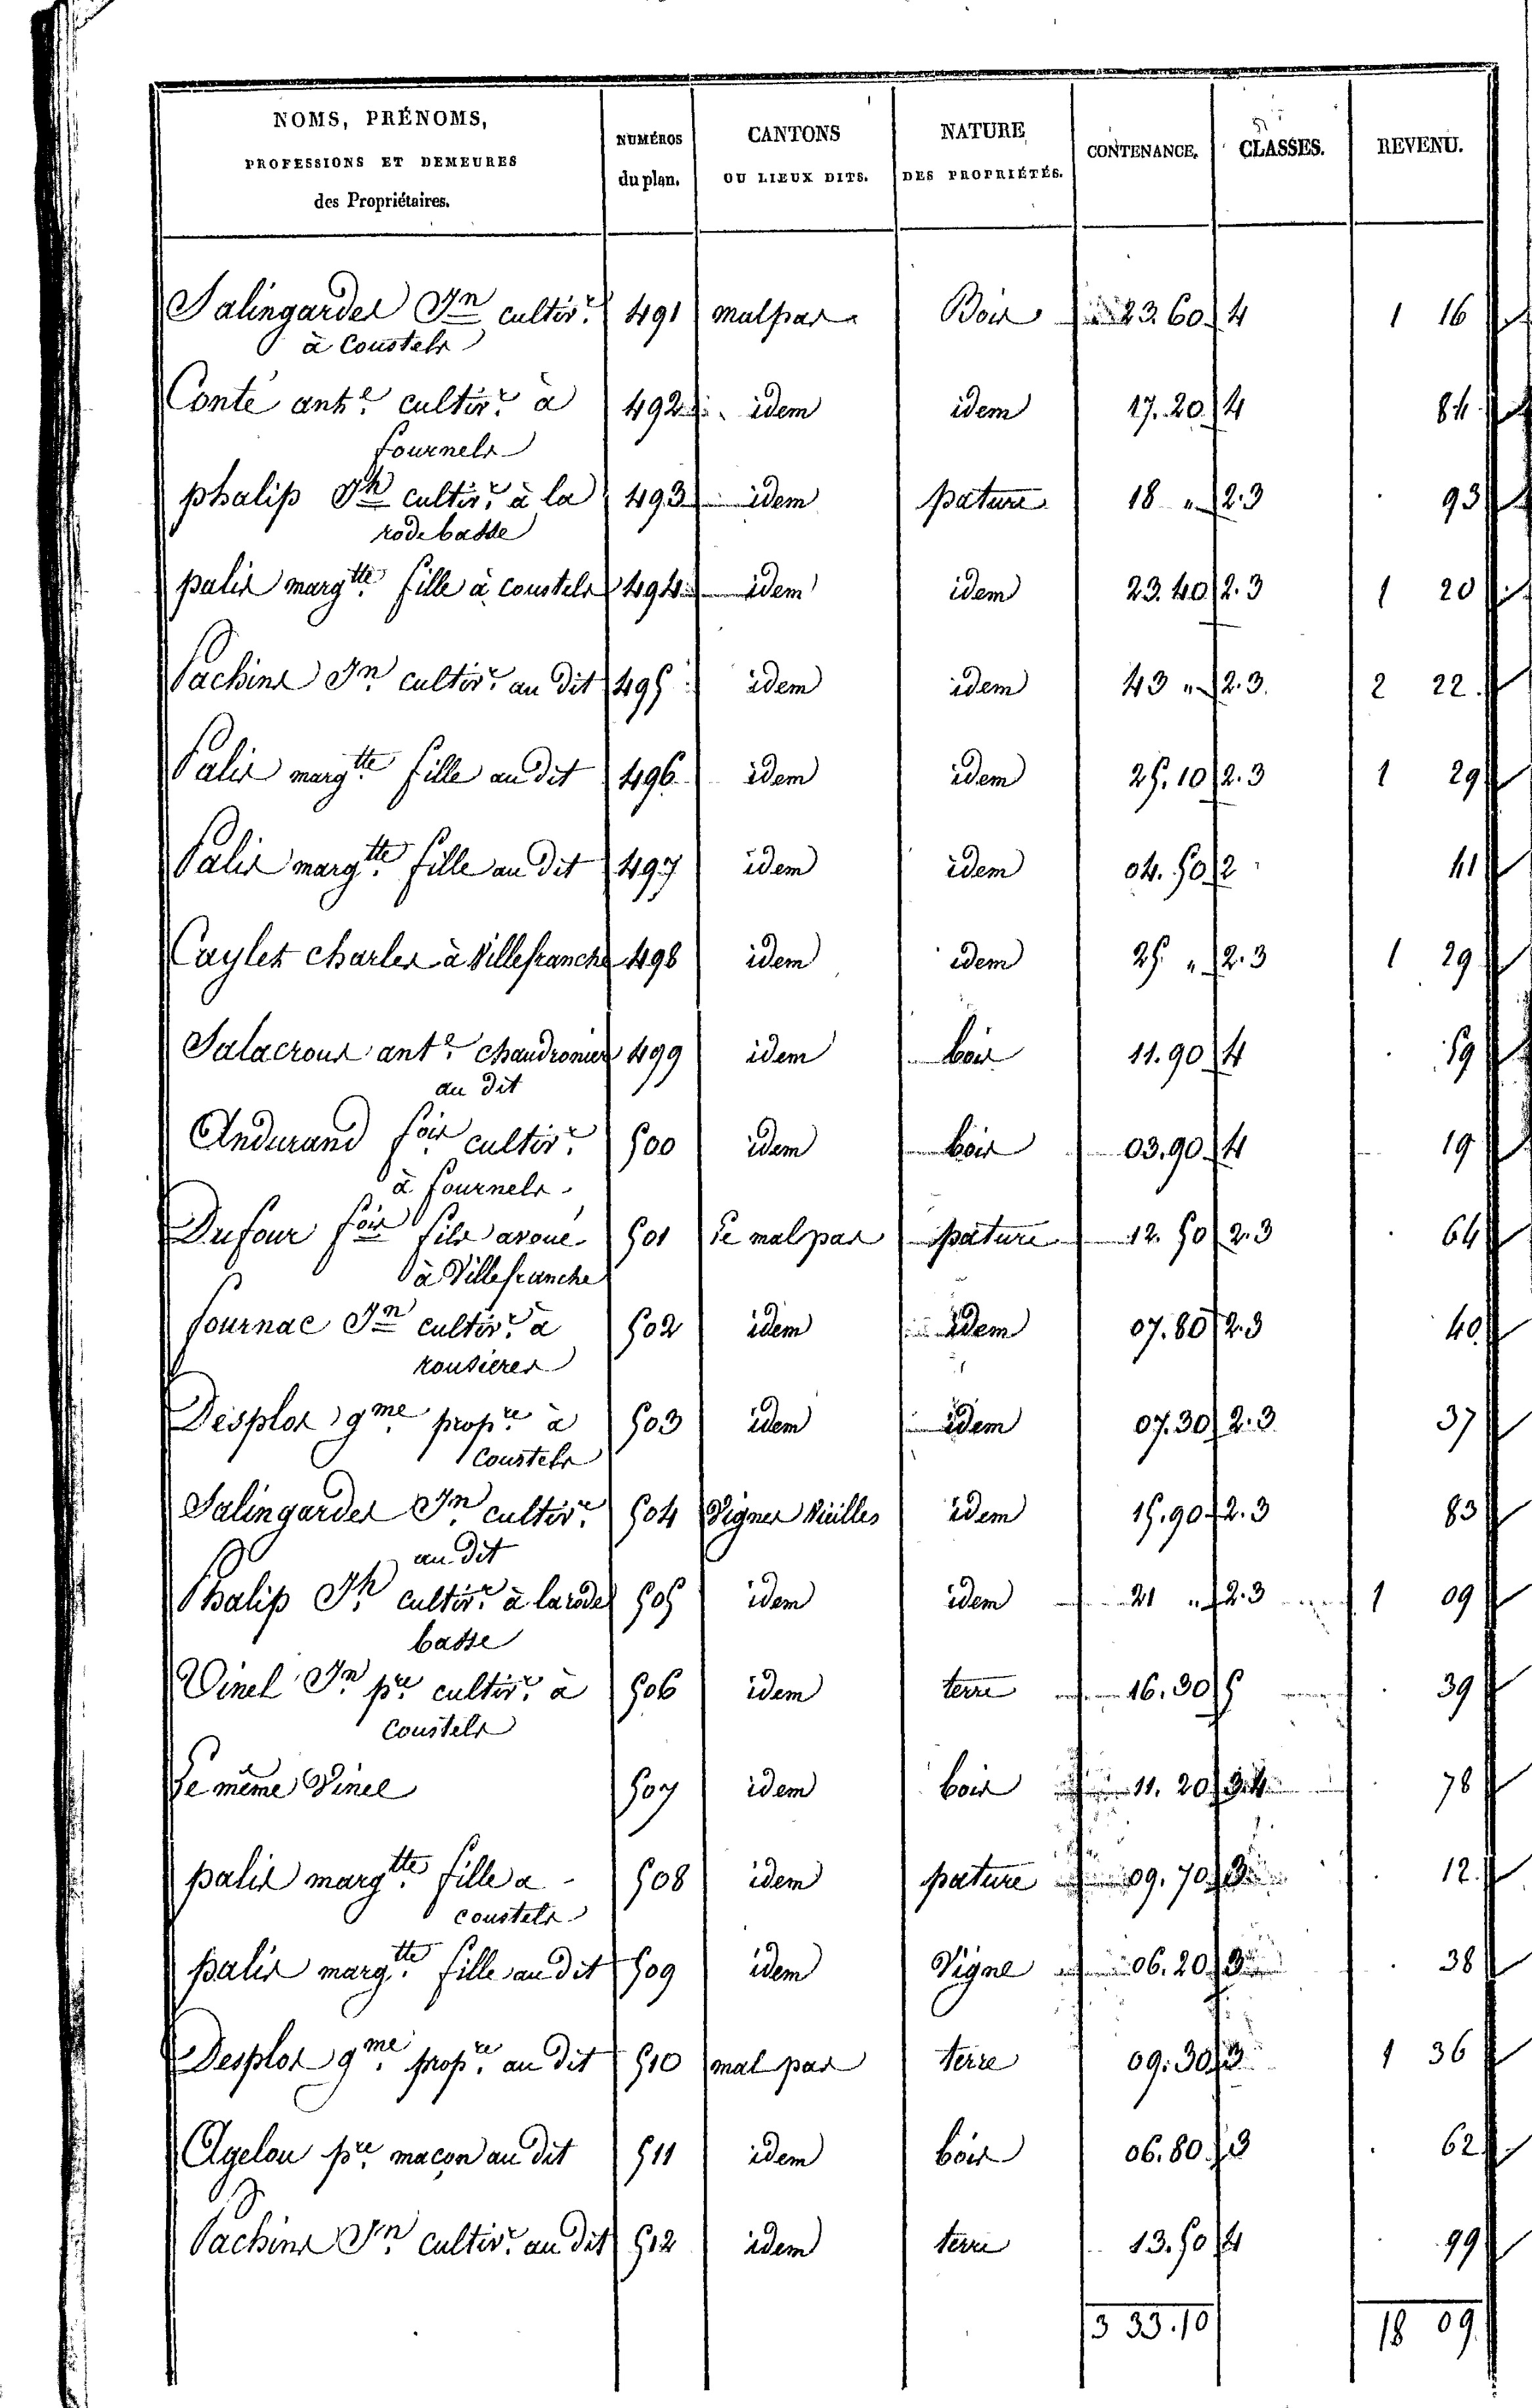 NOMS, PRÉNOMS,
PROFESSIONS ET DEMEURES
des Propriétaires.
NUMÉROS
du plan.
CANTONS
OU LIEUX DITS.
NATURE
DES PROPRIÉTÉS.
CONTENANCE.
CLASSES.
REVENU.
Salingardes Jn cultivr. 491 malpas Bois 23.60 4 1 16
à Coustels
Conté ante. cultivr. à 492 idem idem 17.20 4 84
fournels
phalip Jh cultivr. à la 493 idem pature 18 " 2.3 93
rode basse
palis margtte. fille à coustels 494 idem idem 23.40 2.3 1 20
Pachins Jn. cultivr. au dit 495 idem idem 43 " 2.3. 2 22.
Palis margtte. fille au dit 496 idem idem 25.10 2.3 1 29
Palis margtte. fille au dit 497 idem idem 04.50 2 41
Caylet charles à Villefranche 498 idem idem 25 " 2.3 1 29
Salacroux ante. chaudronier 499 idem bois 11.90 4 59
au dit
Andurand fois. cultivr. 500 idem bois 03.90 4 19
à fournels
Dufour fois fils avoué 501 Le malpas pature 12.50 2.3 64
à Villefranche
fournac Jn cultivr. à 502 idem idem 07.80 2.3 40
rousieres
Desplos gme. propre. à 503 idem idem 07.30 2.3 37
Coustels
Salingardes Jn. cultivr. 504 Vignes Vieilles idem 15.90 2.3 83
au dit
Phalip Jh. cultivr. à la rode 505 idem idem 21 " 2.3 1 09
basse
Vinel Jn. pre. cultivr. à 506 idem terre 16.30 5 39
Coustels
Le même Vinel 507 idem bois 11.20 3.4 78
palis margtte. fille a 508 idem pature 09.70 3 12
coustels
palis margtte. fille au dit 509 idem Vigne 06.20 3 38
Desplos gme. propre. au dit 510 mal pas terre 09.30 3 1 36
Agelou pre. maçon au dit 511 idem bois 06.80 3 62
Pachins Jn. cultivr. au dit 512 idem terre 13.50 4 99
3 33.10 18 09